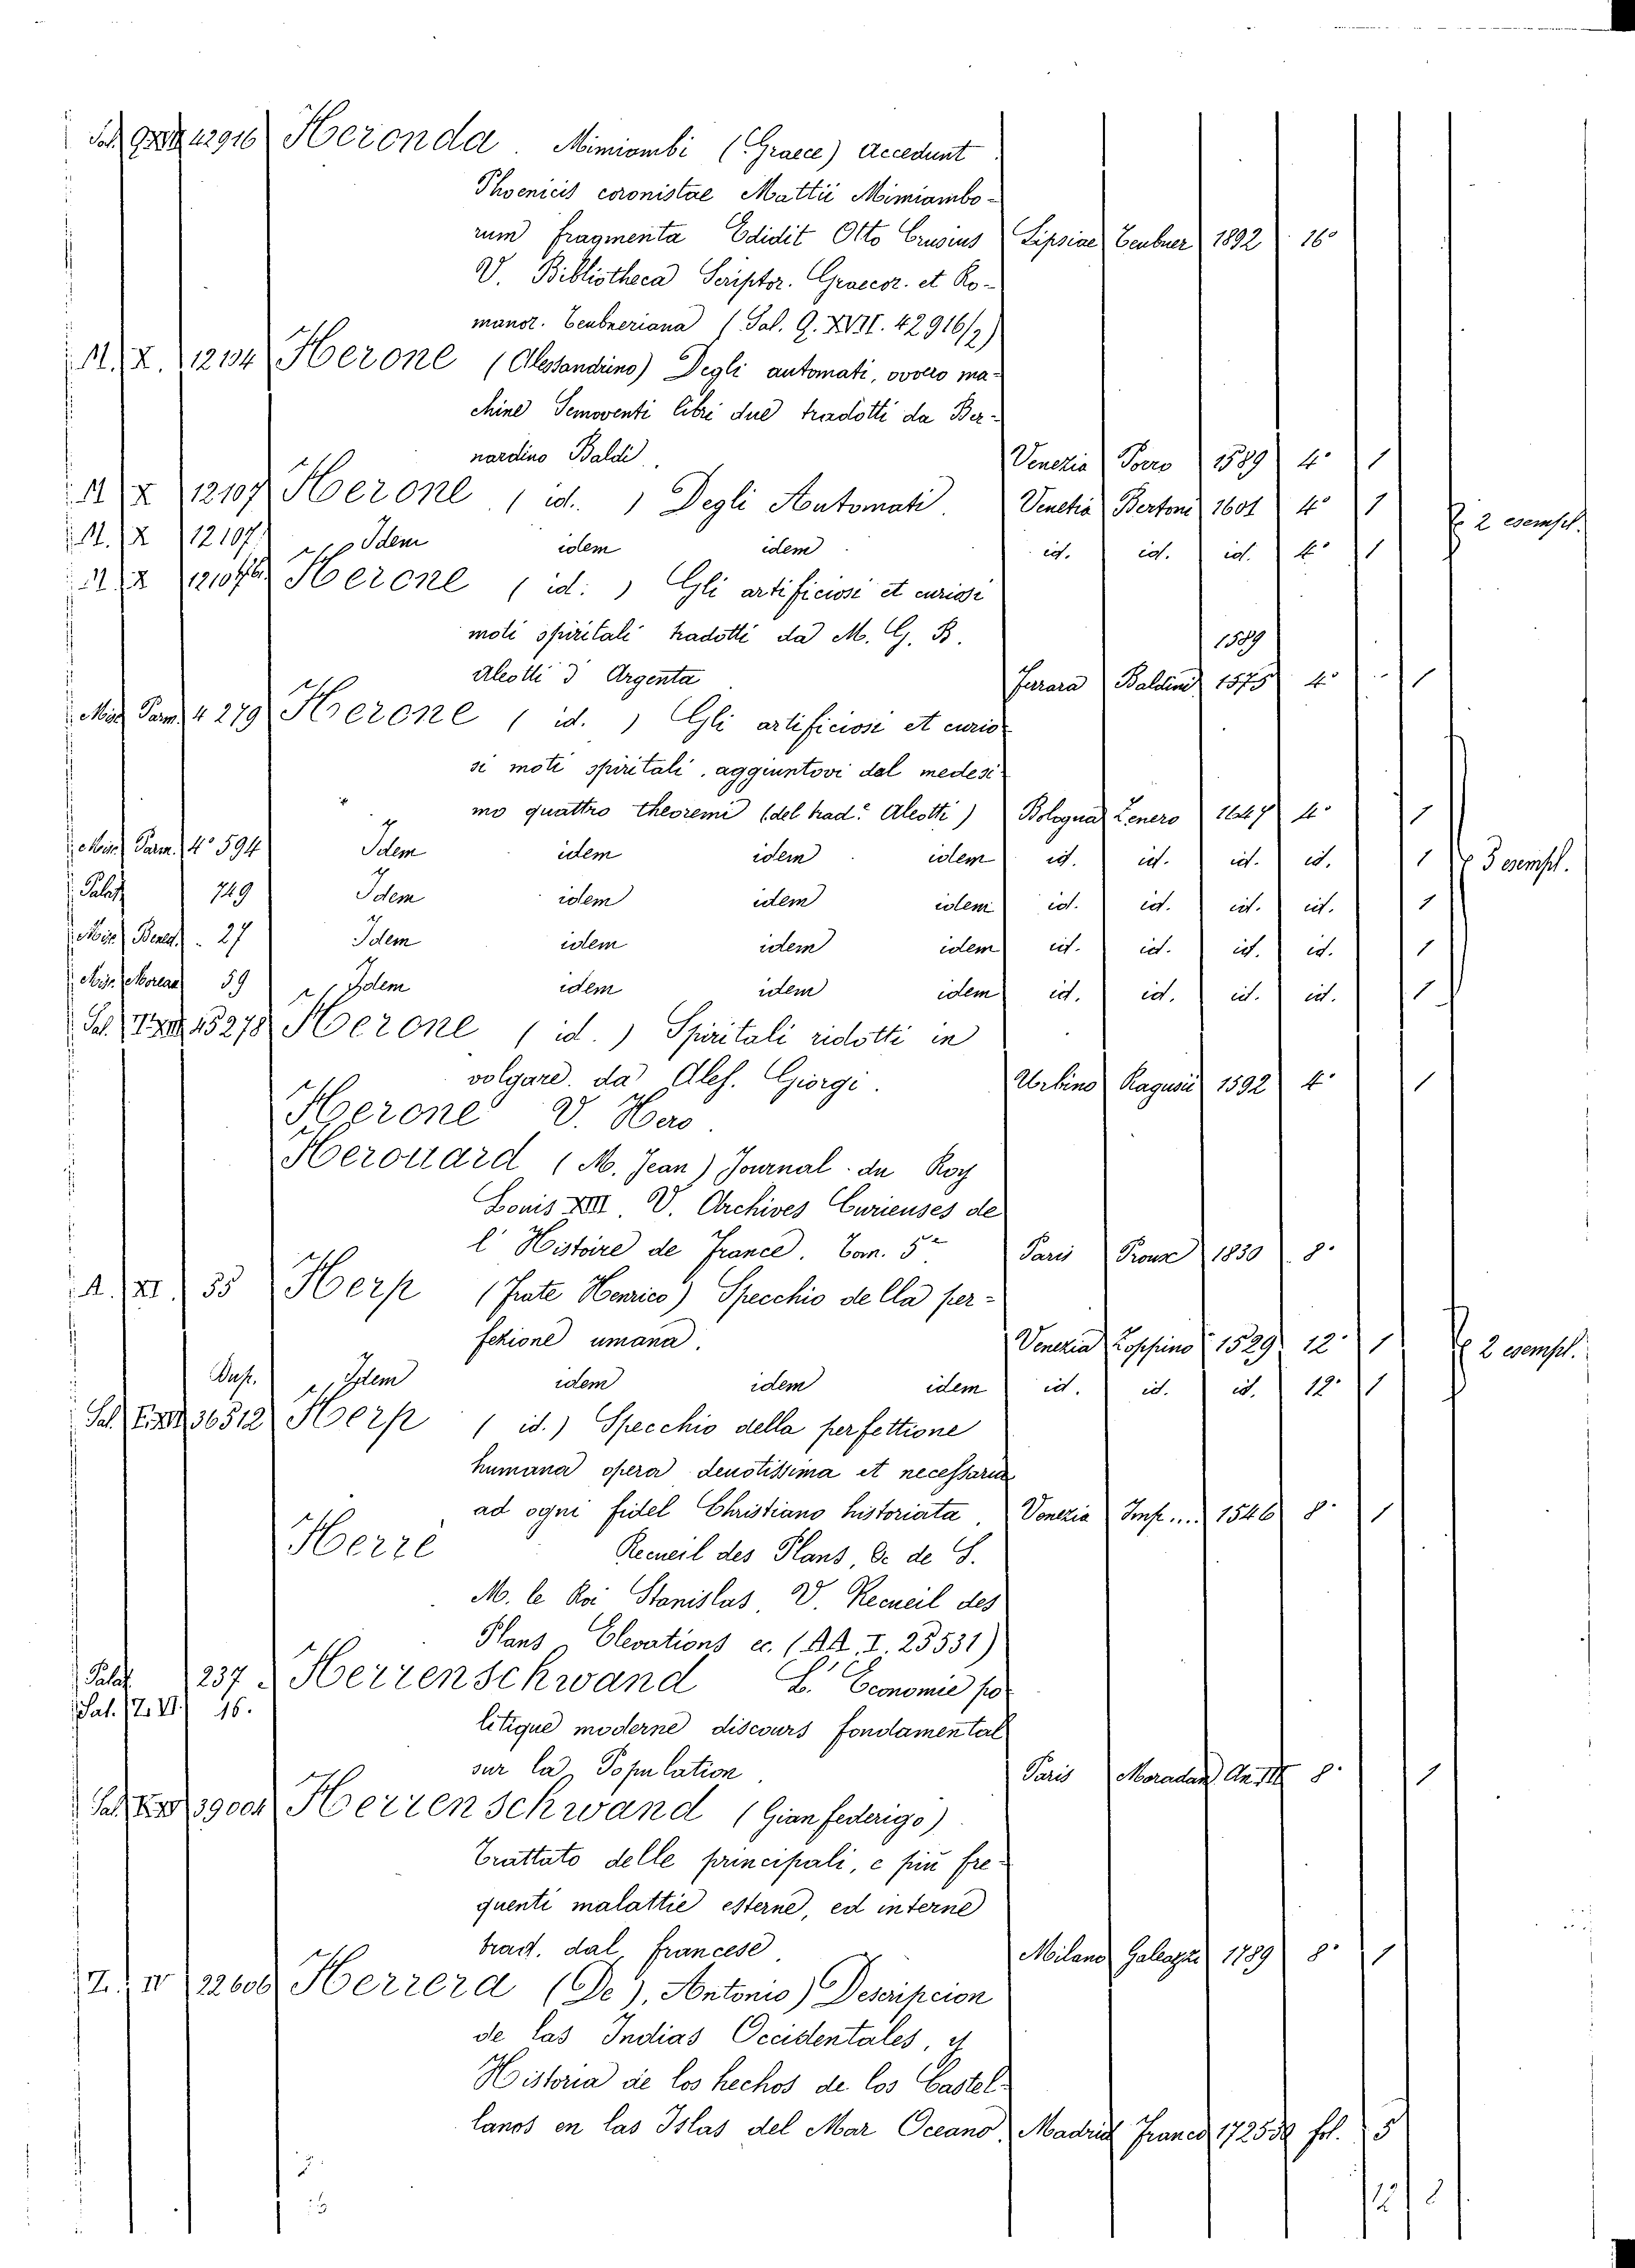 Heronda. Mimiambi (Graece) Accedunt
Phoenicis coronistae Mattii Mimiambo-
rum fragmenta Edidit Otto Crusius Lipsiae Teubner 1892 16°
V. Bibliotheca Scriptor. Graecor. et Ro-
manor. Teubneriana (Sal. Q. XVII. 42916/2)
M. X. 12104 Herone (Alessandrino) Degli automati, ovvero ma-
chine Semoventi libri due tradotti da Ber-
nardino Baldi Venezia Porro 1589 4° 1
M X 12107 Herone (id.) Degli Automati. Venetia Bertoni 1601 4° 1 2 esempl.
M. X 12107 Idem idem idem id. id. id. 4° 1
M X Herone (id:) Gli artificiosi et curiosi
moti spiritali tradotti da M. G. B. 1589
Aleotti d'Argenta Ferrara Baldini 1575 4° 1
Misc Parm. 4 279 Herone (id.) Gli artificiosi et curio-
si moti spiritali, aggiuntovi dal medesi-
mo quattro theoremi (del trad.e Aleotti) Bologna Zenero 1647 4° 1
Misc. Parm. 4° 594 Idem idem idem idem id. id. id. id. 1 5 esempl.
Palat 749 Idem idem idem idem id. id. id. id. 1
Misc Bened. 27 Idem idem idem idem id. id. id. id. 1
Misc. Moreau 59 Idem idem idem idem id. id. id. id. 1
Sal. 45278 Herone (id.) Spiritali ridotti in
volgare. da Ales. Giorgi. Urbino Ragusii 1592 4° 1
Herone V. Hero.
Herouard (M. Jean) Journal du Roy
Louis XIII. V. Archives Curieuses de
l'Histoire de France. Tom. 5e Paris 1830 8°
A. XI. 35 Herp (Frate Henrico) Specchio della per-
fezione umana. Venezia Zoppino 1529 12° 1 2 esempl.
Dup. Idem idem idem idem id. id. id. 12° 1
Sal. 36512 Herp (id.) Specchio della perfettione
humana opera deuotissima et necessaria
ad ogni fidel Christiano historiata, Venezia Imp.... 1546 8° 1
Herré Recueil des Plans, &c de S.
M. le Roi Stanislas, V. Recueil des
Plans, Elevations ec. (AA. I. 25531)
Palat 237 Herrenschwand L'Economie po-
Sal. Z. VI. 16.
litique moderne discours fondamental
sur la Population Paris Maradan An. III 8° 1
Sal. 39004 Herrenschwand (Gian federigo)
Trattato delle principali, e più fre-
quenti malattie esterne, ed interne
trad. dal francese Milano Galeazzi 1789 8° 1
Z. IV 22606 Herrera (De), Antonio) Descripcion
de las Indias Occidentales, y
Historia de los hechos de los Castel-
lanos en las Islas del Mar Oceano, Madrid Franco 172530 fol. 5